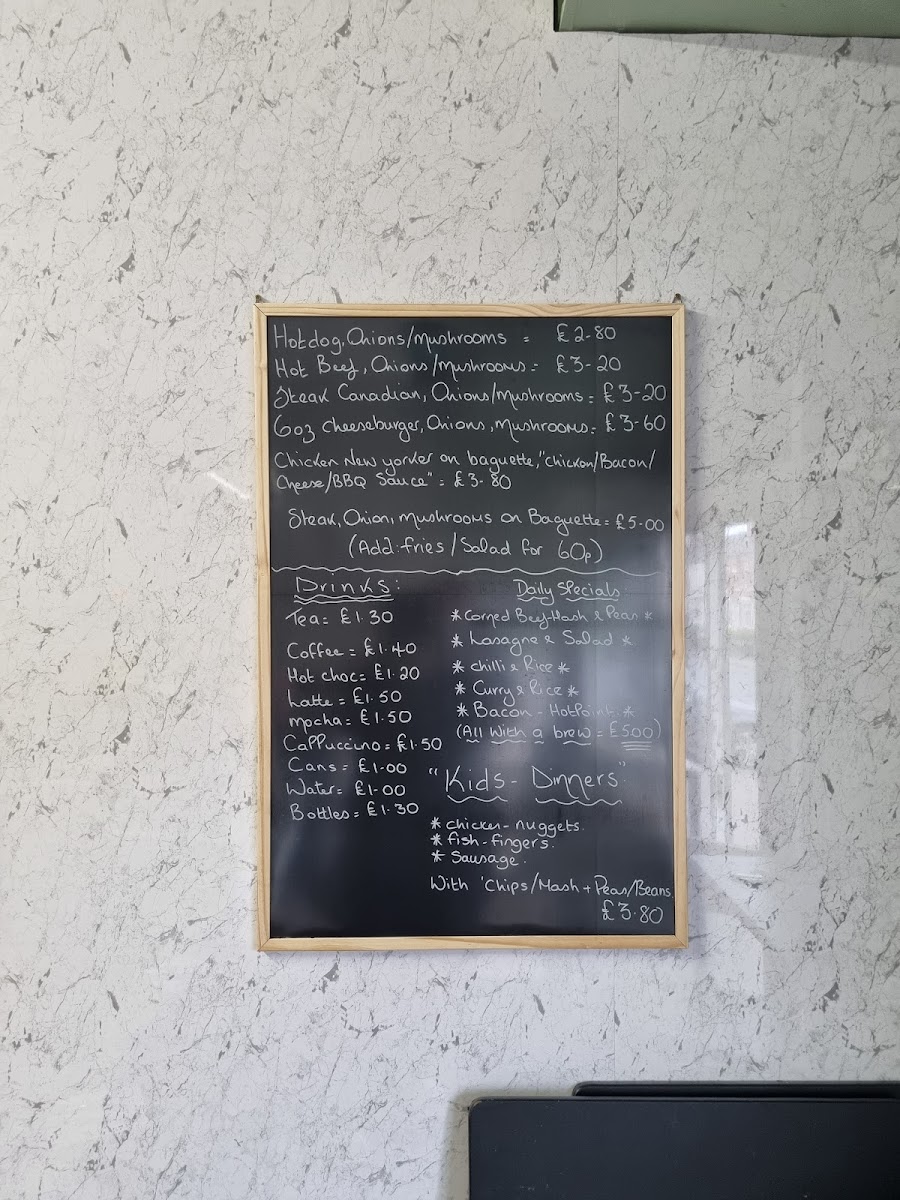 Hotdog, Onions/Mushrooms = £2.80
Hot Beef, Onions/Mushrooms = £3-20
Steak Canadian, Onions/Mushrooms = £3-20
6oz cheeseburger, Onions, Mushrooms = £3-60
Chicken New yorker on baguette, "chicken/Bacon/
Cheese/BBQ Sauce" = £3-80
Steak, Onion, Mushrooms on Baguette = £5.00
(Add fries/Salad for 60p)
Drinks:
Tea = £1.30
Coffee = £1.40
Hot choc = £1.20
Latte = £1.50
Mocha = £1.50
Cappuccino = £1.50
Cans = £1-00
Water = £1-00
Bottles = £1.30
Daily Specials
* Corned Beef-Hash & Peas *
* Lasagne & Salad *
* chilli & Rice *
* Curry & Rice *
* Bacon - HotPoint *
(All With a brew = £5.00)
"Kids - Dinners"
* chicken-nuggets.
* fish-fingers.
* Sausage.
With 'Chips/Mash + Peas/Beans
£3.80